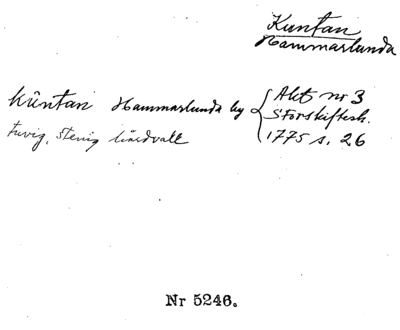 Kuntan
Hammarlunda
Kûntan Hammarlunda by { Akt nr 3
Storskiftesk.
1775 s. 26
tuvig, stenig hårdvall
Nr 5246.